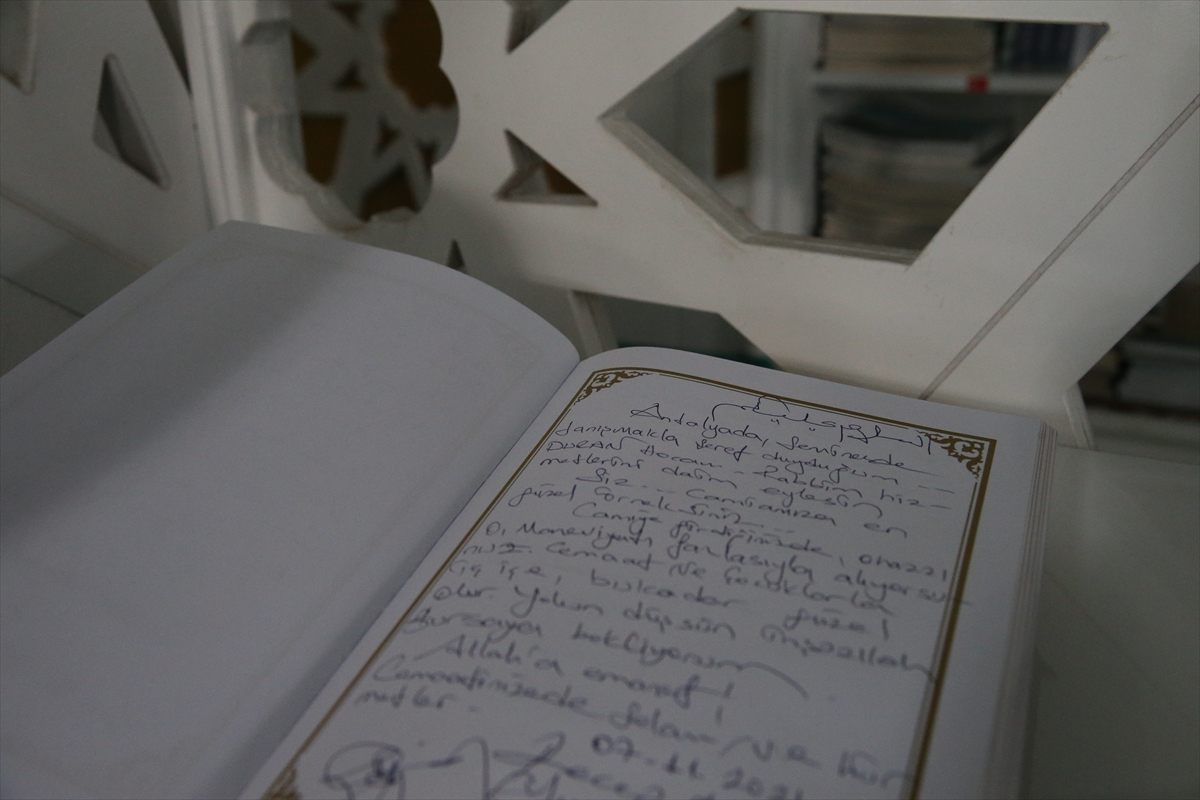 Antalyada, seminerde
tanışmakla şeref duyduğum
DURAN Hocam - Rabbim hiz-
metlerini daim eylesin
Siz... Camiamıza en
güzel örneksiniz...
Camiye girdiğinizde, o hazzı,
O, Maneviyatı fazlasıyla alıyorsu-
nuz. Cemaat ve Çocuklarla
iç içe, bu kadar güzel
olur. Yolun düşsün inşaallah
Bursaya bekliyorum
Allah'a emanet!
Cemaatinizede Selam ve Hür
metler.
07-11 2021